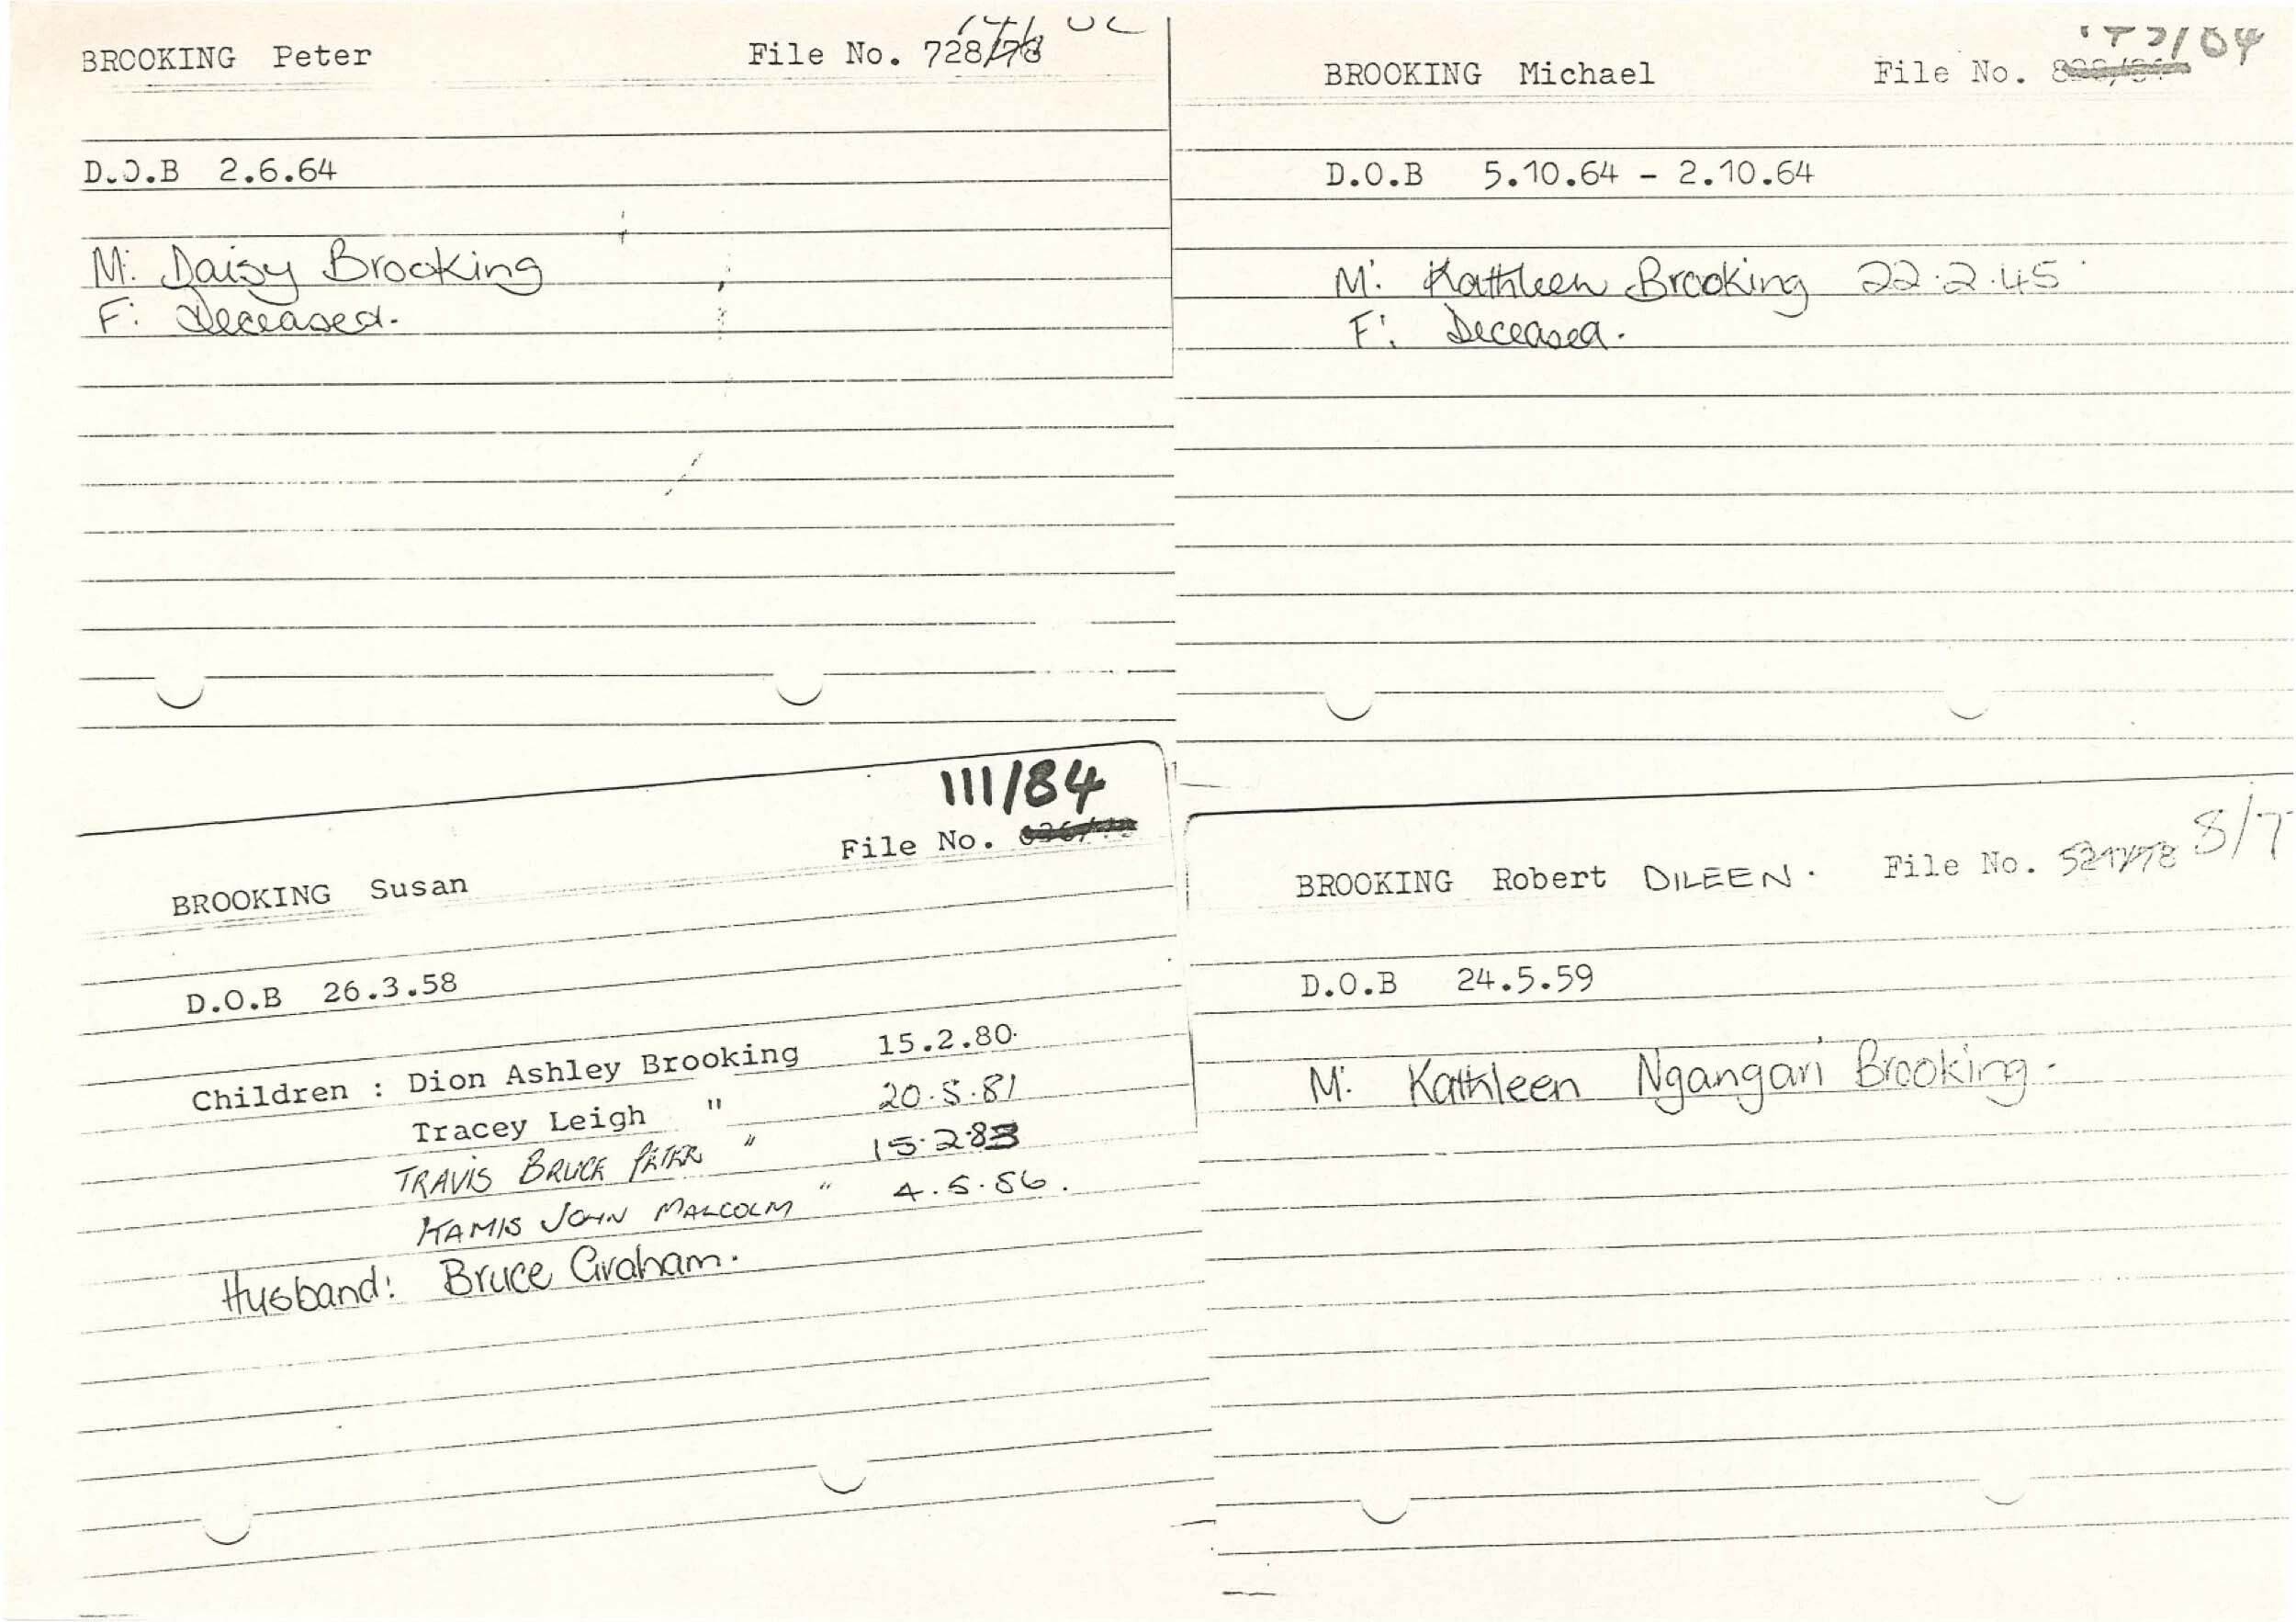 BROOKING Peter File No. 728/78
D.O.B 2.6.64
M: Daisy Brooking
F: Deceased.
BROOKING Michael File No.
D.O.B 5.10.64 - 2.10.64
M: Kathleen Brooking 22.2.45
F: Deceased.
111/84
File No.
BROOKING Susan
D.O.B 26.3.58
Children : Dion Ashley Brooking 15.2.80.
Tracey Leigh " 20.5.81
TRAVIS BRUCE PETER " 15.2.83
JOHN MALCOLM " 4.5.86.
Husband: Bruce Graham.
8/7
BROOKING Robert DILEEN. File No.
D.O.B 24.5.59
M: Kathleen Ngangari Brooking.